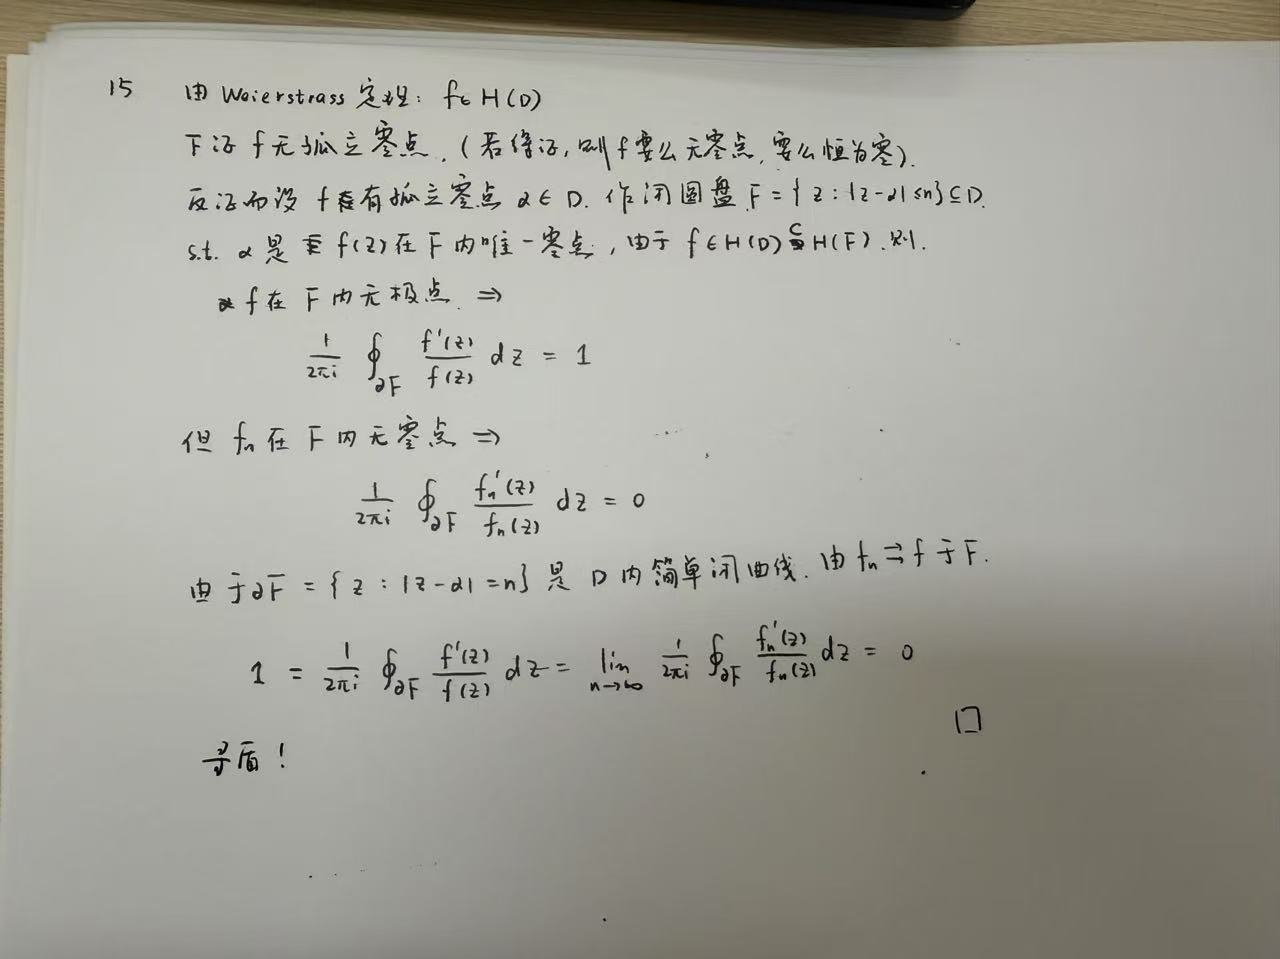 15 由 Weierstrass 定理: f∈H(D)
下证 f 无孤立零点. (若得证, 则 f 要么无零点, 要么恒为零).
反证而设 f 有孤立零点 α∈D. 作闭圆盘 F={z:|z-α|≤η}⊆D.
s.t. α 是 f(z) 在 F 内唯一零点, 由于 f∈H(D)⊂H(F). 则.
f 在 F 内无极点. ⇒
\frac{1}{2πi} ∮_{∂F} \frac{f'(z)}{f(z)} dz = 1
但 fₙ 在 F 内无零点 ⇒
\frac{1}{2πi} ∮_{∂F} \frac{fₙ'(z)}{fₙ(z)} dz = 0
由于 ∂F={z:|z-α|=η} 是 D 内简单闭曲线. 由 fₙ⇉f 于 F.
1 = \frac{1}{2πi} ∮_{∂F} \frac{f'(z)}{f(z)} dz = \lim_{n→∞} \frac{1}{2πi} ∮_{∂F} \frac{fₙ'(z)}{fₙ(z)} dz = 0
矛盾! □